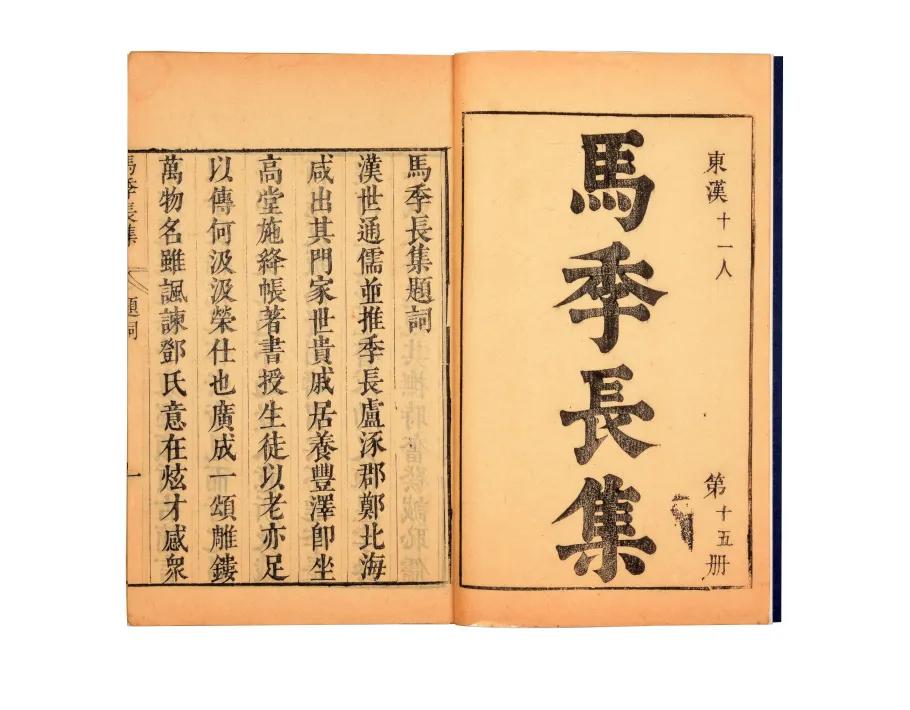 東漢十一人
第十五册
馬季長集
馬季長集題詞
漢世通儒並推季長盧涿郡鄭北海
咸出其門家世貴戚居養豐澤卽坐
高堂施絳帳著書授生徒以老亦足
以傳何汲汲榮仕也廣成一頌雕鏤
萬物名雖諷諫鄧氏意在炫才感衆
馬季長集 題詞 一